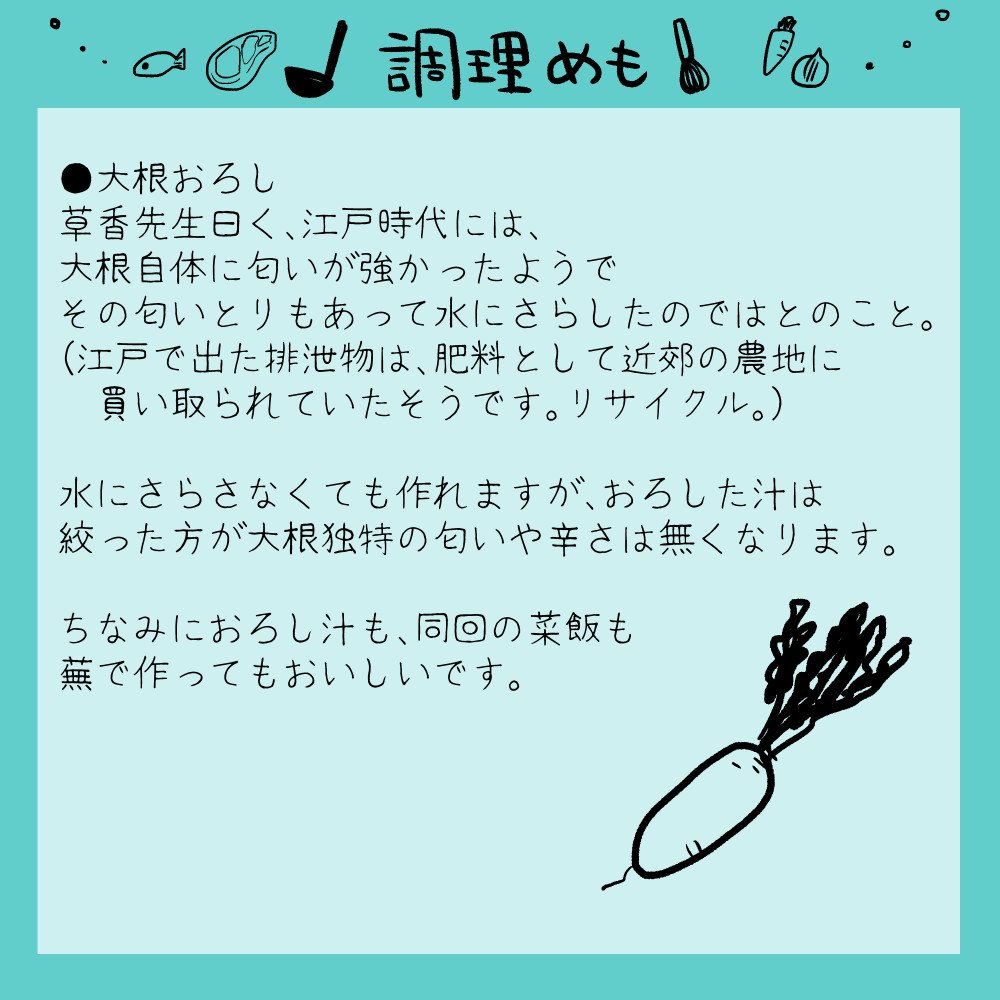 調理めも
●大根おろし
草香先生曰く、江戸時代には、
大根自体に匂いが強かったようで
その匂いとりもあって水にさらしたのではとのこと。
(江戸で出た排泄物は、肥料として近郊の農地に
買い取られていたそうです。リサイクル。)
水にさらさなくても作れますが、おろした汁は
絞った方が大根独特の匂いや辛さは無くなります。
ちなみにおろし汁も、同回の菜飯も
蕪で作ってもおいしいです。